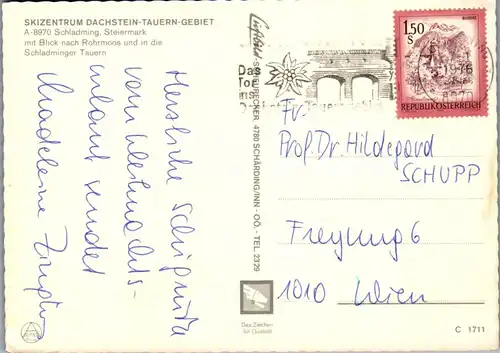 SKIZENTRUM DACHSTEIN-TAUERN-GEBIET
A-8970 Schladming, Steiermark
mit Blick nach Rohrmoos und in die
Schladminger Tauern
Herzliche Schigrüße
vom Weihnachts-
urlaub sendet
Madeleine
SCHÄRDING/INN - OÖ. - TEL 2329
4780
Das
Tor
ins
1976
8970
1,50
S
REPUBLIK ÖSTERREICH
Fr.
Prof. Dr. Hildegard
SCHUPP
Freyung 6
1010 Wien
Das Zeichen
für Qualität
C 1711